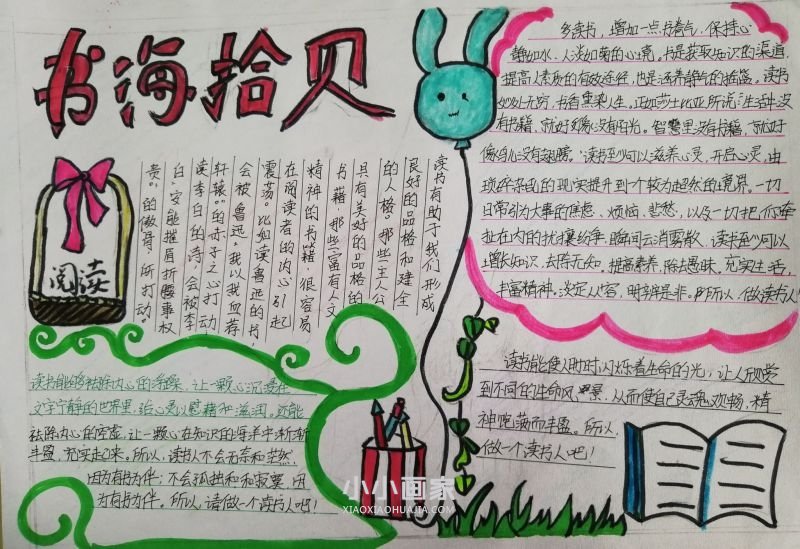 书海拾贝
阅读
读书有助于我们形成
良好的品格和健全
的人格。那些主人公
具有美好的品格的
书籍，那些富有人文
精神的书籍，很容易
在阅读者的内心引起
震荡。比如读鲁迅的书
会被鲁迅"我以我血荐
轩辕"的赤子之心打动
读李白的诗，会被李
白"安能摧眉折腰事权
贵"的傲骨，所打动。
多读书，增加一点书卷气，保持心
静如水、人淡如菊的心境。书是获取知识的渠道，
提高人素质的有效途径，也是涵养静气的摇篮。读书
妙处无穷，书香熏染人生，正如莎士比亚所说："生活中没
有书籍，就好像没有阳光。智慧里没有书籍，就好
像鸟儿没有翅膀。"读书至少可以滋养心灵，开启心灵，由
琐碎杂乱的现实提升到一个较为超然的境界。一切
日常引为大事的焦虑、烦恼、悲愁，以及一切把你牵
扯在内的扰攘纷争，瞬间云消雾散。读书至少可以
增长知识，去除无知，提高素养，除去愚昧。充实生活，
丰富精神。淡定人容，明辨是非。所以，做个读书人！
读书能够祛除内心的浮躁，让一颗心沉浸在
文字宁静的世界里，给心灵以慰藉和滋润。还能
祛除内心的空虚，让一颗心在知识的海洋中渐渐
丰盈，充实起来。所以，读书人不会无奈和茫然，
因为有书为伴；不会孤独和和寂寞，因
为有书为伴。所以，请做一个读书人吧！
读书能使人时时闪烁着生命的光，让人欣赏
到不同的生命风景，从而使自己灵魂欢畅，精
神饱满而丰盈。所以，
做一个读书人吧！
小小画家
XIAOXIAOHUAJIA.COM